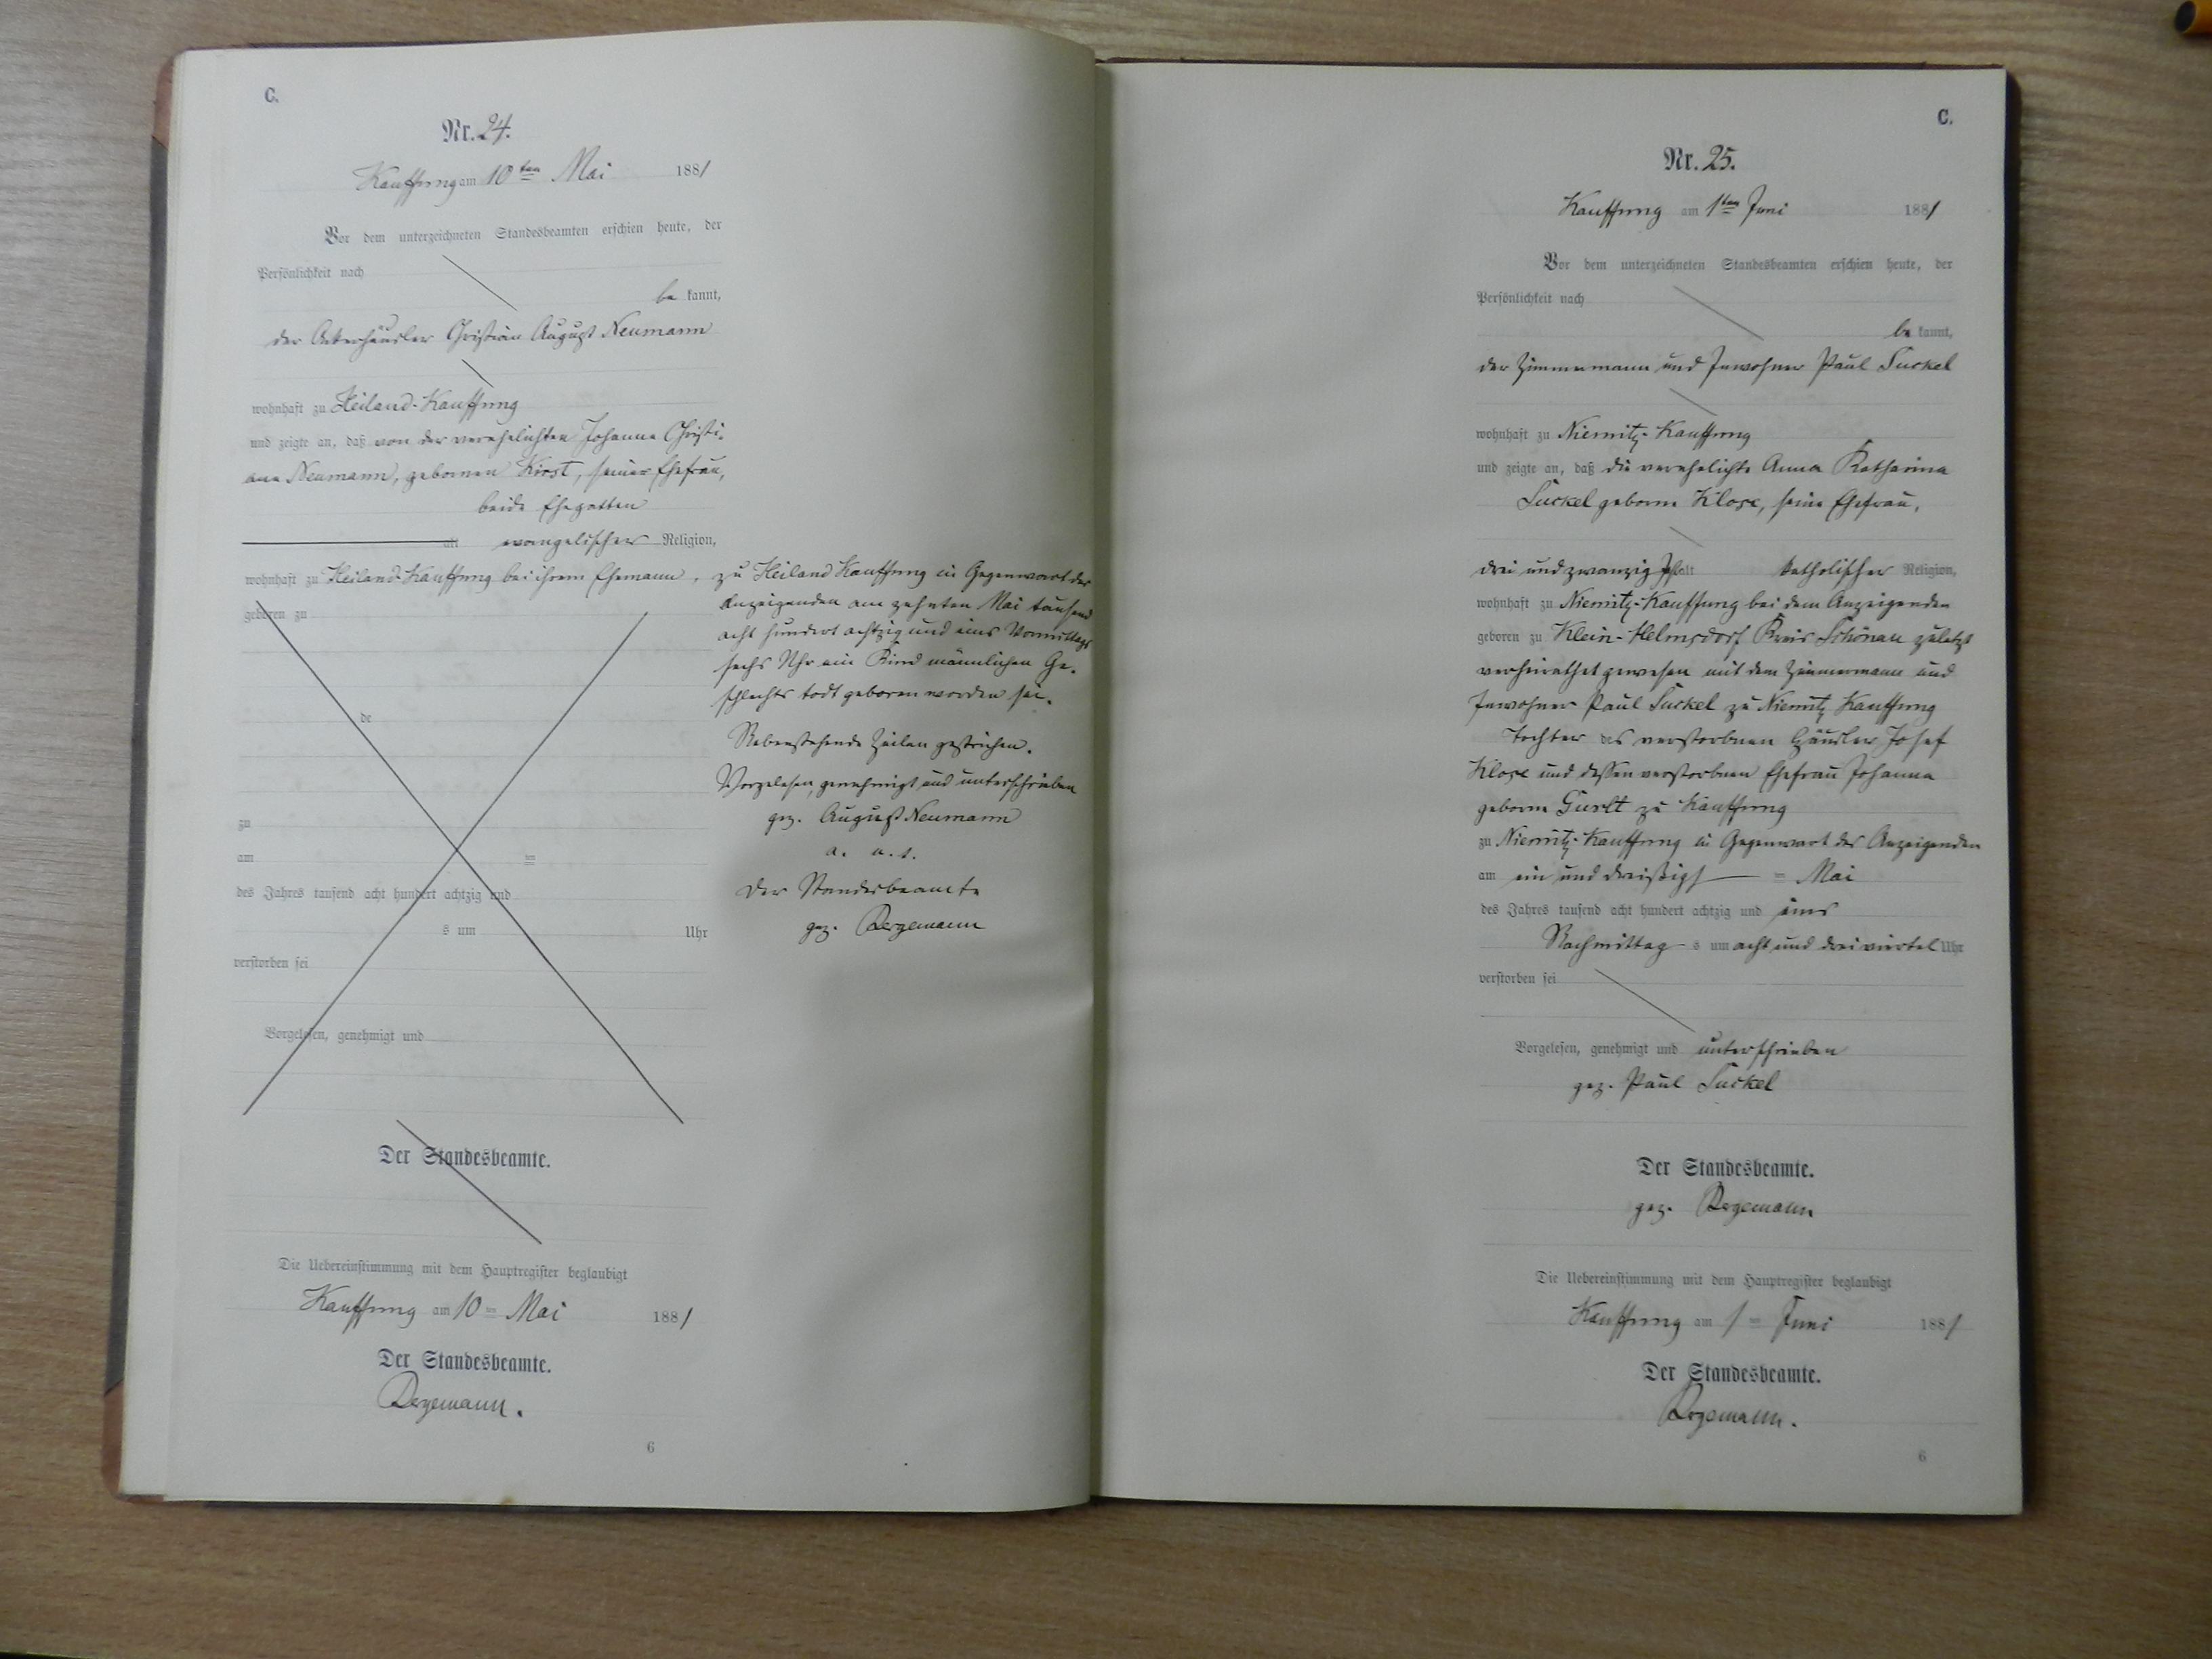 C.
Nr. 24.
Kauffung am 10ten Mai 1881
Vor dem unterzeichneten Standesbeamten erschien heute, der
Persönlichkeit nach
be kannt,
der Ackerhäusler Christian August Neumann
wohnhaft zu Heiland-Kauffung
und zeigte an, daß von der verehelichten Johanne Christi-
ane Neumann, gebornen Kirst, seiner Ehefrau,
beide Ehegatten
alt evangelischer Religion,
wohnhaft zu Heiland-Kauffung bei ihrem Ehemann,
geboren zu
de
zu
am ten
des Jahres tausend acht hundert achtzig und
s um Uhr
verstorben sei
Vorgelesen, genehmigt und
Der Standesbeamte.
Die Uebereinstimmung mit dem Hauptregister beglaubigt
Kauffung am 10 ten Mai 1881
Der Standesbeamte.
Bergemann.
6
zu Heiland Kauffung in Gegenwart des
Anzeigenden am zehnten Mai tausend
acht hundert achtzig und eins Vormittags
sechs Uhr ein Kind männlichen Ge-
schlechts todt geboren worden sei.
Nebenstehende Zeilen gestrichen.
Vorgelesen, genehmigt und unterschrieben
gez. August Neumann
a. u. s.
Der Standesbeamte
gez. Bergemann
C.
Nr. 25.
Kauffung am 1ten Juni 1881
Vor dem unterzeichneten Standesbeamten erschien heute, der
Persönlichkeit nach
be kannt,
der Zimmermann und Inwohner Paul Suckel
wohnhaft zu Niemitz-Kauffung
und zeigte an, daß die verehelichte Anna Katharina
Suckel geborne Klose, seine Ehefrau,
drei und zwanzig Jahr alt katholischer Religion,
wohnhaft zu Niemitz-Kauffung bei dem Anzeigenden
geboren zu Klein-Helmsdorf Kreis Schönau zuletzt
verheirathet gewesen mit dem Zimmermann und
Inwohner Paul Suckel zu Niemitz Kauffung
Tochter des verstorbnen Häusler Josef
Klose und dessen verstorbnen Ehefrau Johanna
geborne Gurlt zu Kauffung
zu Niemitz-Kauffung in Gegenwart des Anzeigenden
am ein und dreißigst ten Mai
des Jahres tausend acht hundert achtzig und eins
Nachmittag s um acht und drei viertel Uhr
verstorben sei
Vorgelesen, genehmigt und unterschrieben
gez. Paul Suckel
Der Standesbeamte.
gez. Bergemann
Die Uebereinstimmung mit dem Hauptregister beglaubigt
Kauffung am 1 ten Juni 1881
Der Standesbeamte.
Bergemann.
6